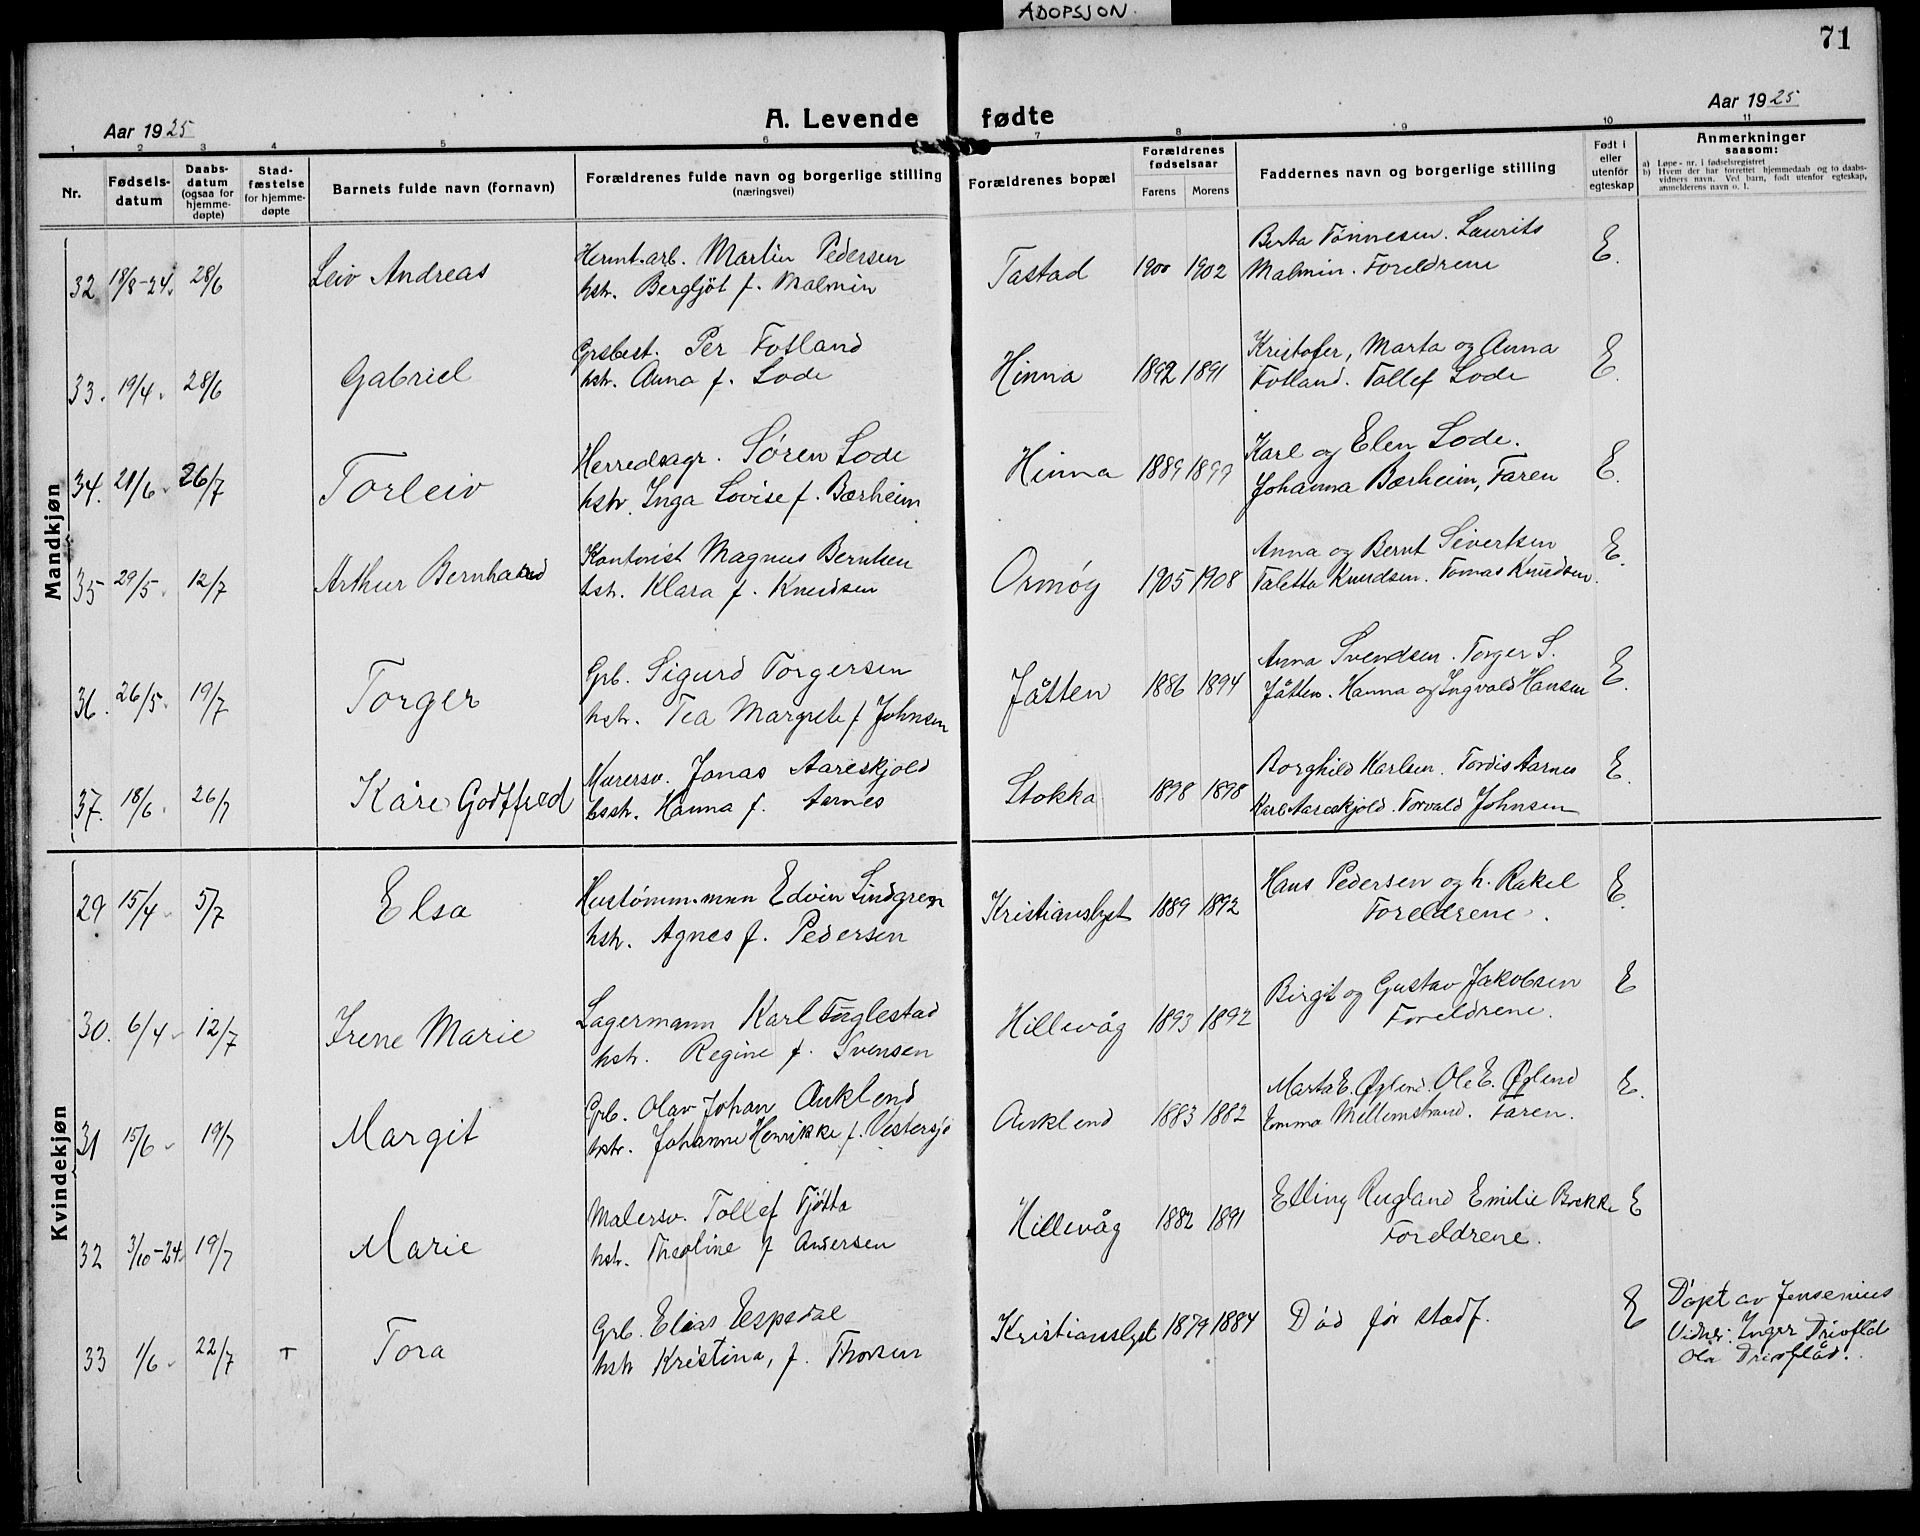 ADOPSJON.
71
Aar 1925
A. Levende fødte
Aar 1925
1 2 3 4 5 6 7 8 9 10 11
Nr.
Fødsels-
datum
Daabs-
datum
(ogsaa for
hjemme-
døpte)
Stad-
fæstelse
for hjemme-
døpte
Barnets fulde navn (fornavn)
Forældrenes fulde navn og borgerlige stilling
(næringsvei)
Forældrenes bopæl
Forældrenes
fødselsaar
Farens Morens
Faddernes navn og borgerlige stilling
Født i
eller
utenfor
egteskap
Anmerkninger
saasom:
a) Løpe-nr. i fødselsregistret
b) Hvem der har forrettet hjemmedaab og to daabs-
vidners navn. Ved barn, født utenfor egteskap,
anmelderens navn o. l.
Mandkjøn
32 18/8-24. 28/6 Leiv Andreas
Hermt.arb. Martin Pedersen
hstr. Bergljöt f. Malmin
Tastad 1900 1902
Berta Tönnesen. Laurits
Malmin. Foreldrene
E.
33. 19/4. 28/6 Gabriel
Grsbest. Per Fotland
hstr. Anna f. Lode
Hinna 1892 1891
Kristofer, Marta og Anna
Fotland. Tollef Lode
E.
34. 21/6. 26/7 Torleiv
Herredsagr. Sören Lode
hstr. Inga Lovise f. Bærheim
Hinna 1889 1899
Karl og Elen Lode.
Johanna Bærheim, Faren
E.
35 29/5. 12/7 Arthur Bernhard
Kontorist Magnus Berntsen
hstr. Klara f. Knudsen
Ormöy 1905 1908
Anna og Bernt Sivertsen
Taletta Knudsen. Tomas Knudsen.
E.
36. 26/5. 19/7 Torger
Grb. Sigurd Torgersen
hstr. Tea Margrete f Johnsen
Jåtten 1886 1894
Anna Svendsen. Torger S.
Jåtten. Hanna og Ingvald Hansen
E.
37. 18/6. 26/7 Kåre Godtfred
Murersv. Jonas Aareskjold
hstr. Hanna f. Aarnes
Stokka 1898 1898
Borghild Karlsen. Tordis Aarnes
Karl Aareskjold. Torvald Johnsen
E.
Kvindekjøn
29 15/4. 5/7 Elsa
Hustömm.mnn Edvin Lindgren
hstr. Agnes f. Pedersen
Kristianslyst 1889 1892
Hans Pedersen og h. Rakel
Foreldrene.
E.
30. 6/4. 12/7 Irene Marie
Lagermann Karl Fuglestad
hstr. Regine f. Svensen
Hillevåg 1893 1892
Birgit og Gustav Jakobsen
Foreldrene.
E
31 15/6. 19/7 Margit
Grb. Olav Johan Auklend
hstr. Johanne Henrikke f. Vestersjö
Auklend 1883 1882
Marta E. Øglend. Ole E. Øglend
Emma Mellemstrand. Faren.
E.
32 3/10-24. 19/7 Marie
Malersv. Tollef Tjötta
hstr. Theoline f Andersen
Hillevåg 1882 1891
Elling Rugland Emilie Brekke
Foreldrene.
E
33 1/6. 22/7 T Tora
Grb. Elias Espedal
hstr Kristina, f. Thorsen
Kristianslyst 1879 1884
Död för stadf.
E
Döpt av Jensenius
Vidner: Inger Drivflåt
Ola Drivflåd.